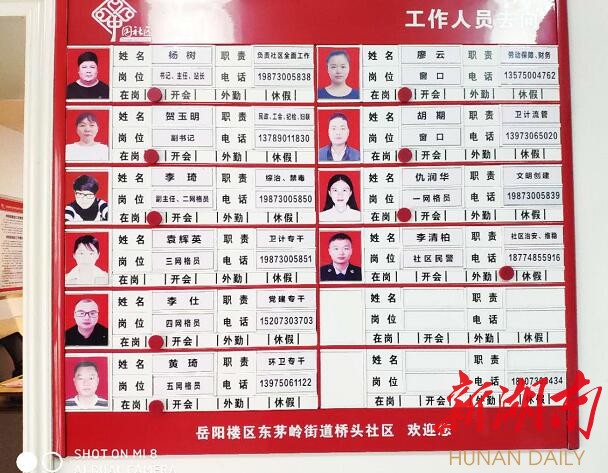 中国社区
工作人员去向
姓名 杨树 职责 负责社区全面工作
岗位 书记、主任、站长 电话 19873005838
在岗 开会 外勤 休假
姓名 廖云 职责 劳动保障、财务
岗位 窗口 电话 13575004762
在岗 开会 外勤 休假
姓名 贺玉明 职责 民政、工会、纪检、妇联
岗位 副书记 电话 13789011830
在岗 开会 外勤 休假
姓名 胡期 职责 卫计流管
岗位 窗口 电话 13973065020
在岗 开会 外勤 休假
姓名 李琦 职责 综治、禁毒
岗位 副主任、二网格员 电话 19873005850
在岗 开会 外勤 休假
姓名 仇润华 职责 文明创建
岗位 一网格员 电话 19873005839
在岗 开会 外勤 休假
姓名 袁辉英 职责 卫计专干
岗位 三网格员 电话 19873005851
在岗 开会 外勤 休假
姓名 李清柏 职责 社区治安、维稳
岗位 社区民警 电话 18774855916
在岗 开会 外勤 休假
姓名 李仕 职责 党建专干
岗位 四网格员 电话 15207303703
在岗 开会 外勤 休假
姓名 职责
岗位 电话
在岗 开会 外勤 休假
姓名 黄琦 职责 环卫专干
岗位 五网格员 电话 13975061122
在岗 开会 外勤 休假
姓名 职责
岗位 电话
在岗 开会 外勤
岳阳楼区东茅岭街道桥头社区 欢迎您
新湖南
HUNAN DAILY
SHOT ON MI 8
AI DUAL CAMERA